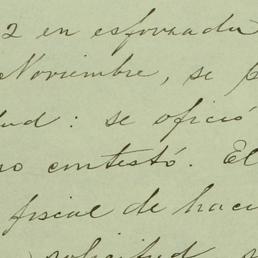 2 en esforzada
Noviembre, se
ud: se ofició
no contestó. El
fiscal de haci
solicitud